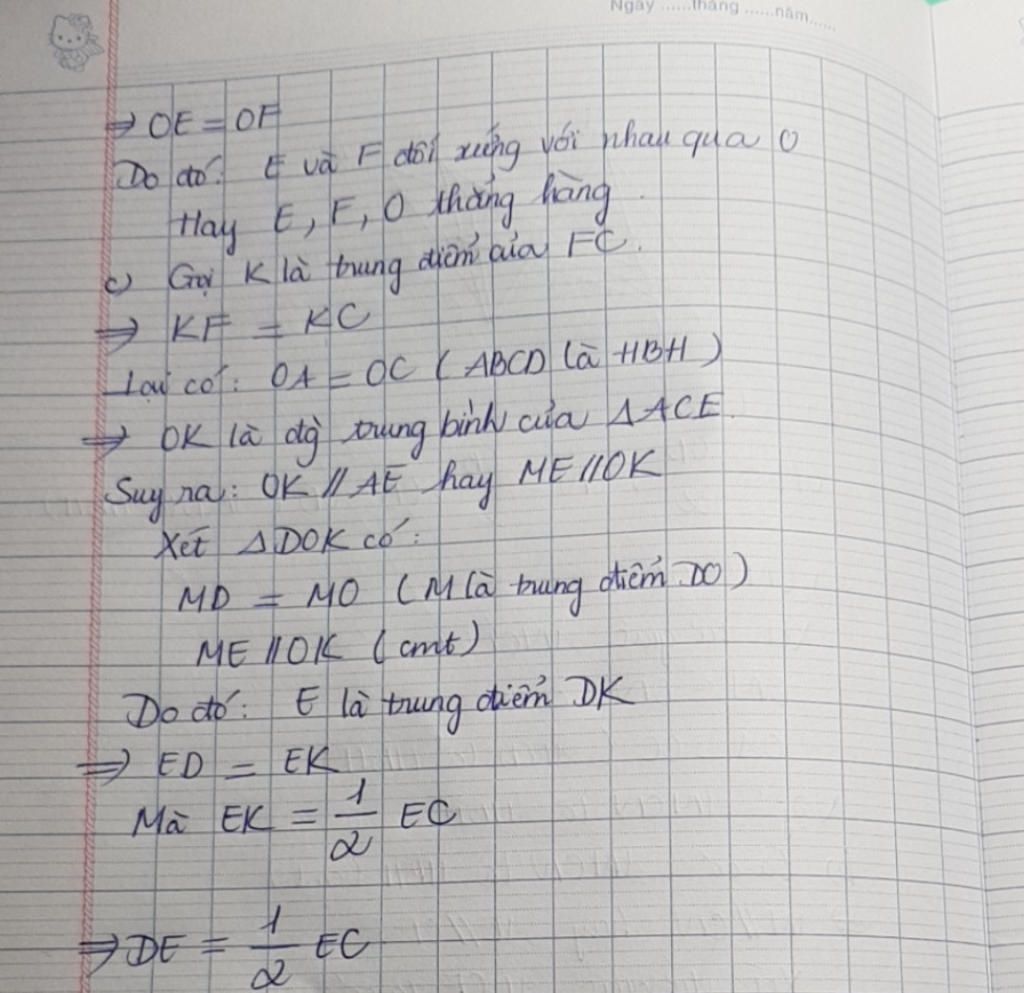 Ngày ......tháng ......năm......
⇒ OE = OF
Do đó: E và F đối xứng với nhau qua O
Hay E, F, O thẳng hàng.
c) Gọi K là trung điểm của FC.
⇒ KF = KC
Lại có: OA = OC (ABCD là HBH)
⇒ OK là đg trung bình của ΔACE.
Suy ra: OK // AE hay ME//OK
Xét ΔDOK có:
MD = MO (M là trung điểm DO)
ME//OK (cmt)
Do đó: E là trung điểm DK
⇒ ED = EK
Mà EK = 1/2 EC
⇒ DE = 1/2 EC